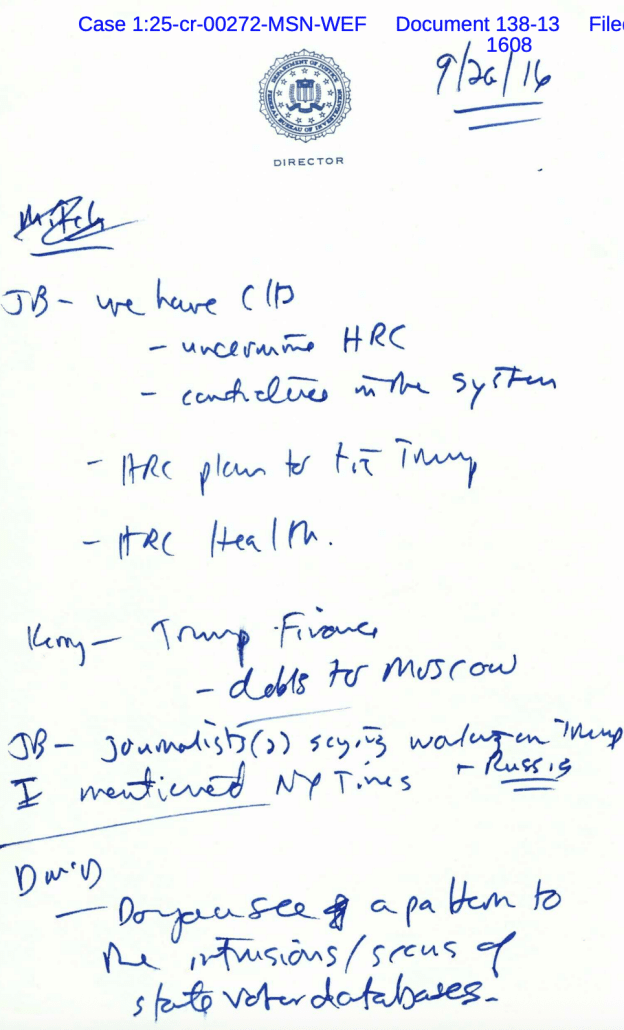 Case 1:25-cr-00272-MSN-WEF Document 138-13 Filed
1608
9/26/16
DEPARTMENT OF JUSTICE
FEDERAL BUREAU OF INVESTIGATION
DIRECTOR
JB - we have
- undermine HRC
- candidates in the system
- HRC plan to tie Trump
- HRC Health.
Kerry - Trump Finance
- debts to Moscow
JB - journalists(2) saying working on Trump
I mentioned NY Times + Russia
- Do you see a pattern to
the intrusions/scans of
state voter databases.